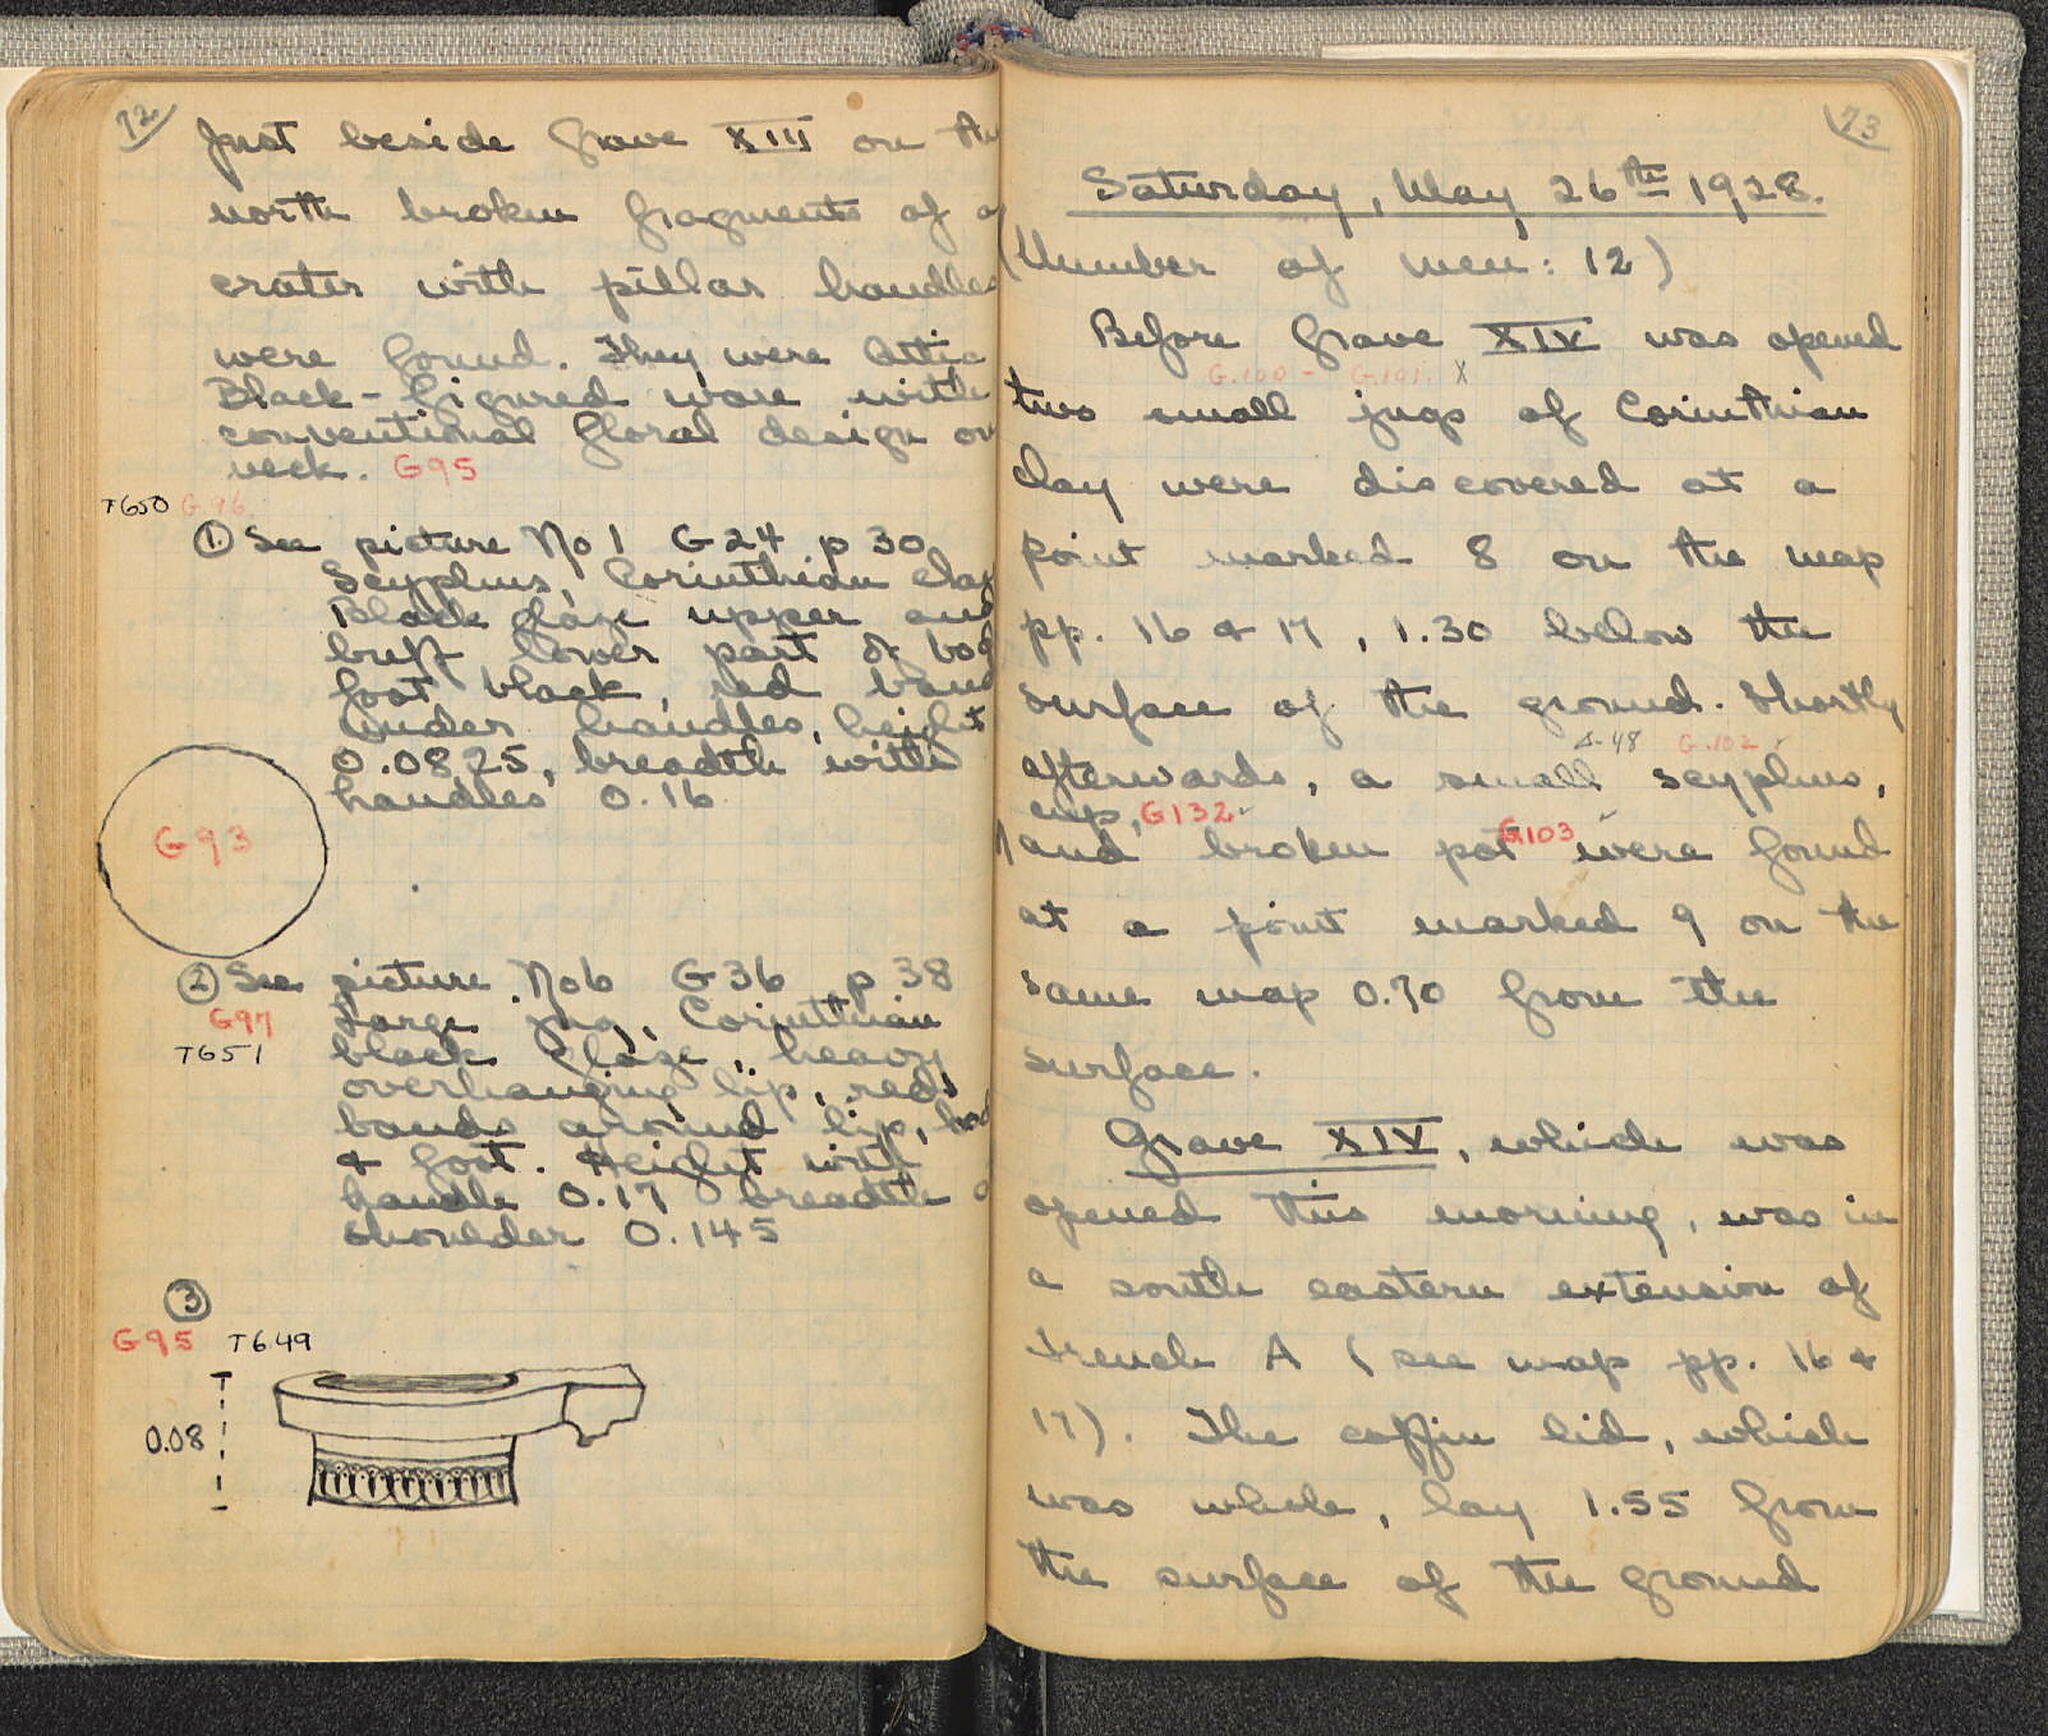 72
Just beside Grave XIII on the
north broken fragments of a
crater with pillar handles
were found. They were Attic
Black-figured ware with
conventional floral design on
neck. G95
T650 G.96.
① See picture No 1 G24 p 30
Scyphus, Corinthian clay
Black glaze upper and
buff lower part of bod
foot black, red band
under handles, height
0.0825, breadth with
handles 0.16
G93
② See picture No 6 G36 p 38
G97 Large jug, Corinthian
T651 black glaze, heavy
overhanging lip, red
bands around lip, bod
& foot. Height with
handle 0.17 breadth
shoulder 0.145
③
G95 T649
0.08
73
Saturday, May 26th 1928.
(Number of men: 12)
Before Grave XIV was opened
G.100 - G.101. X
two small jugs of Corinthian
Clay were discovered at a
point marked 8 on the map
pp. 16 & 17, 1.30 below the
surface of the ground. Shortly
Δ-48 G.102
afterwards, a small scyphus,
cup, G132
and broken pot G103 were found
at a point marked 9 on the
same map 0.70 from the
surface.
Grave XIV, which was
opened this morning, was in
a south eastern extension of
trench A (see map pp. 16 &
17). The coffin lid, which
was whole, lay 1.55 from
the surface of the ground